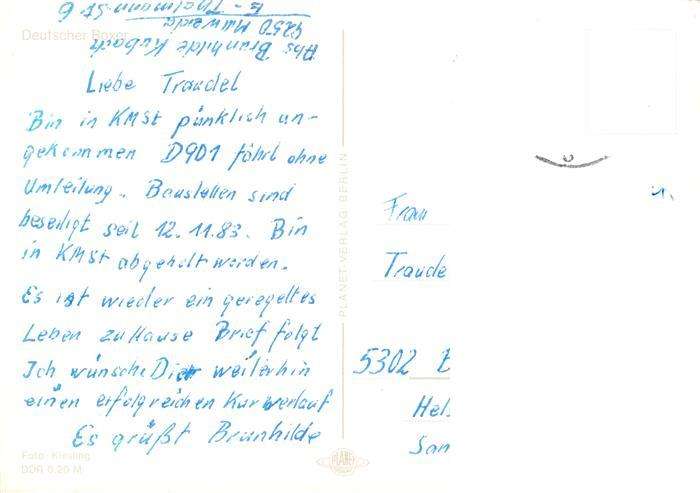 Deutscher Boxer
Abs. Brunhilde Kubach
9250 Mittweida
E.-Thälmann-St. 6
Liebe Traudel
Bin in KMSt pünklich an-
gekommen D901 fährt ohne
Umleitung. Baustellen sind
beseitigt seit 12.11.83. Bin
in KMSt abgeholt worden.
Es ist wieder ein geregeltes
Leben zu Hause Brief folgt
Ich wünsche Dir weiterhin
einen erfolgreichen Kurverlauf
Es grüßt Brunhilde
Foto: Kiesling
DDR 0,20 M
PLANET-VERLAG BERLIN
PLANET
Frau
Traude
5302 B
Hels
San